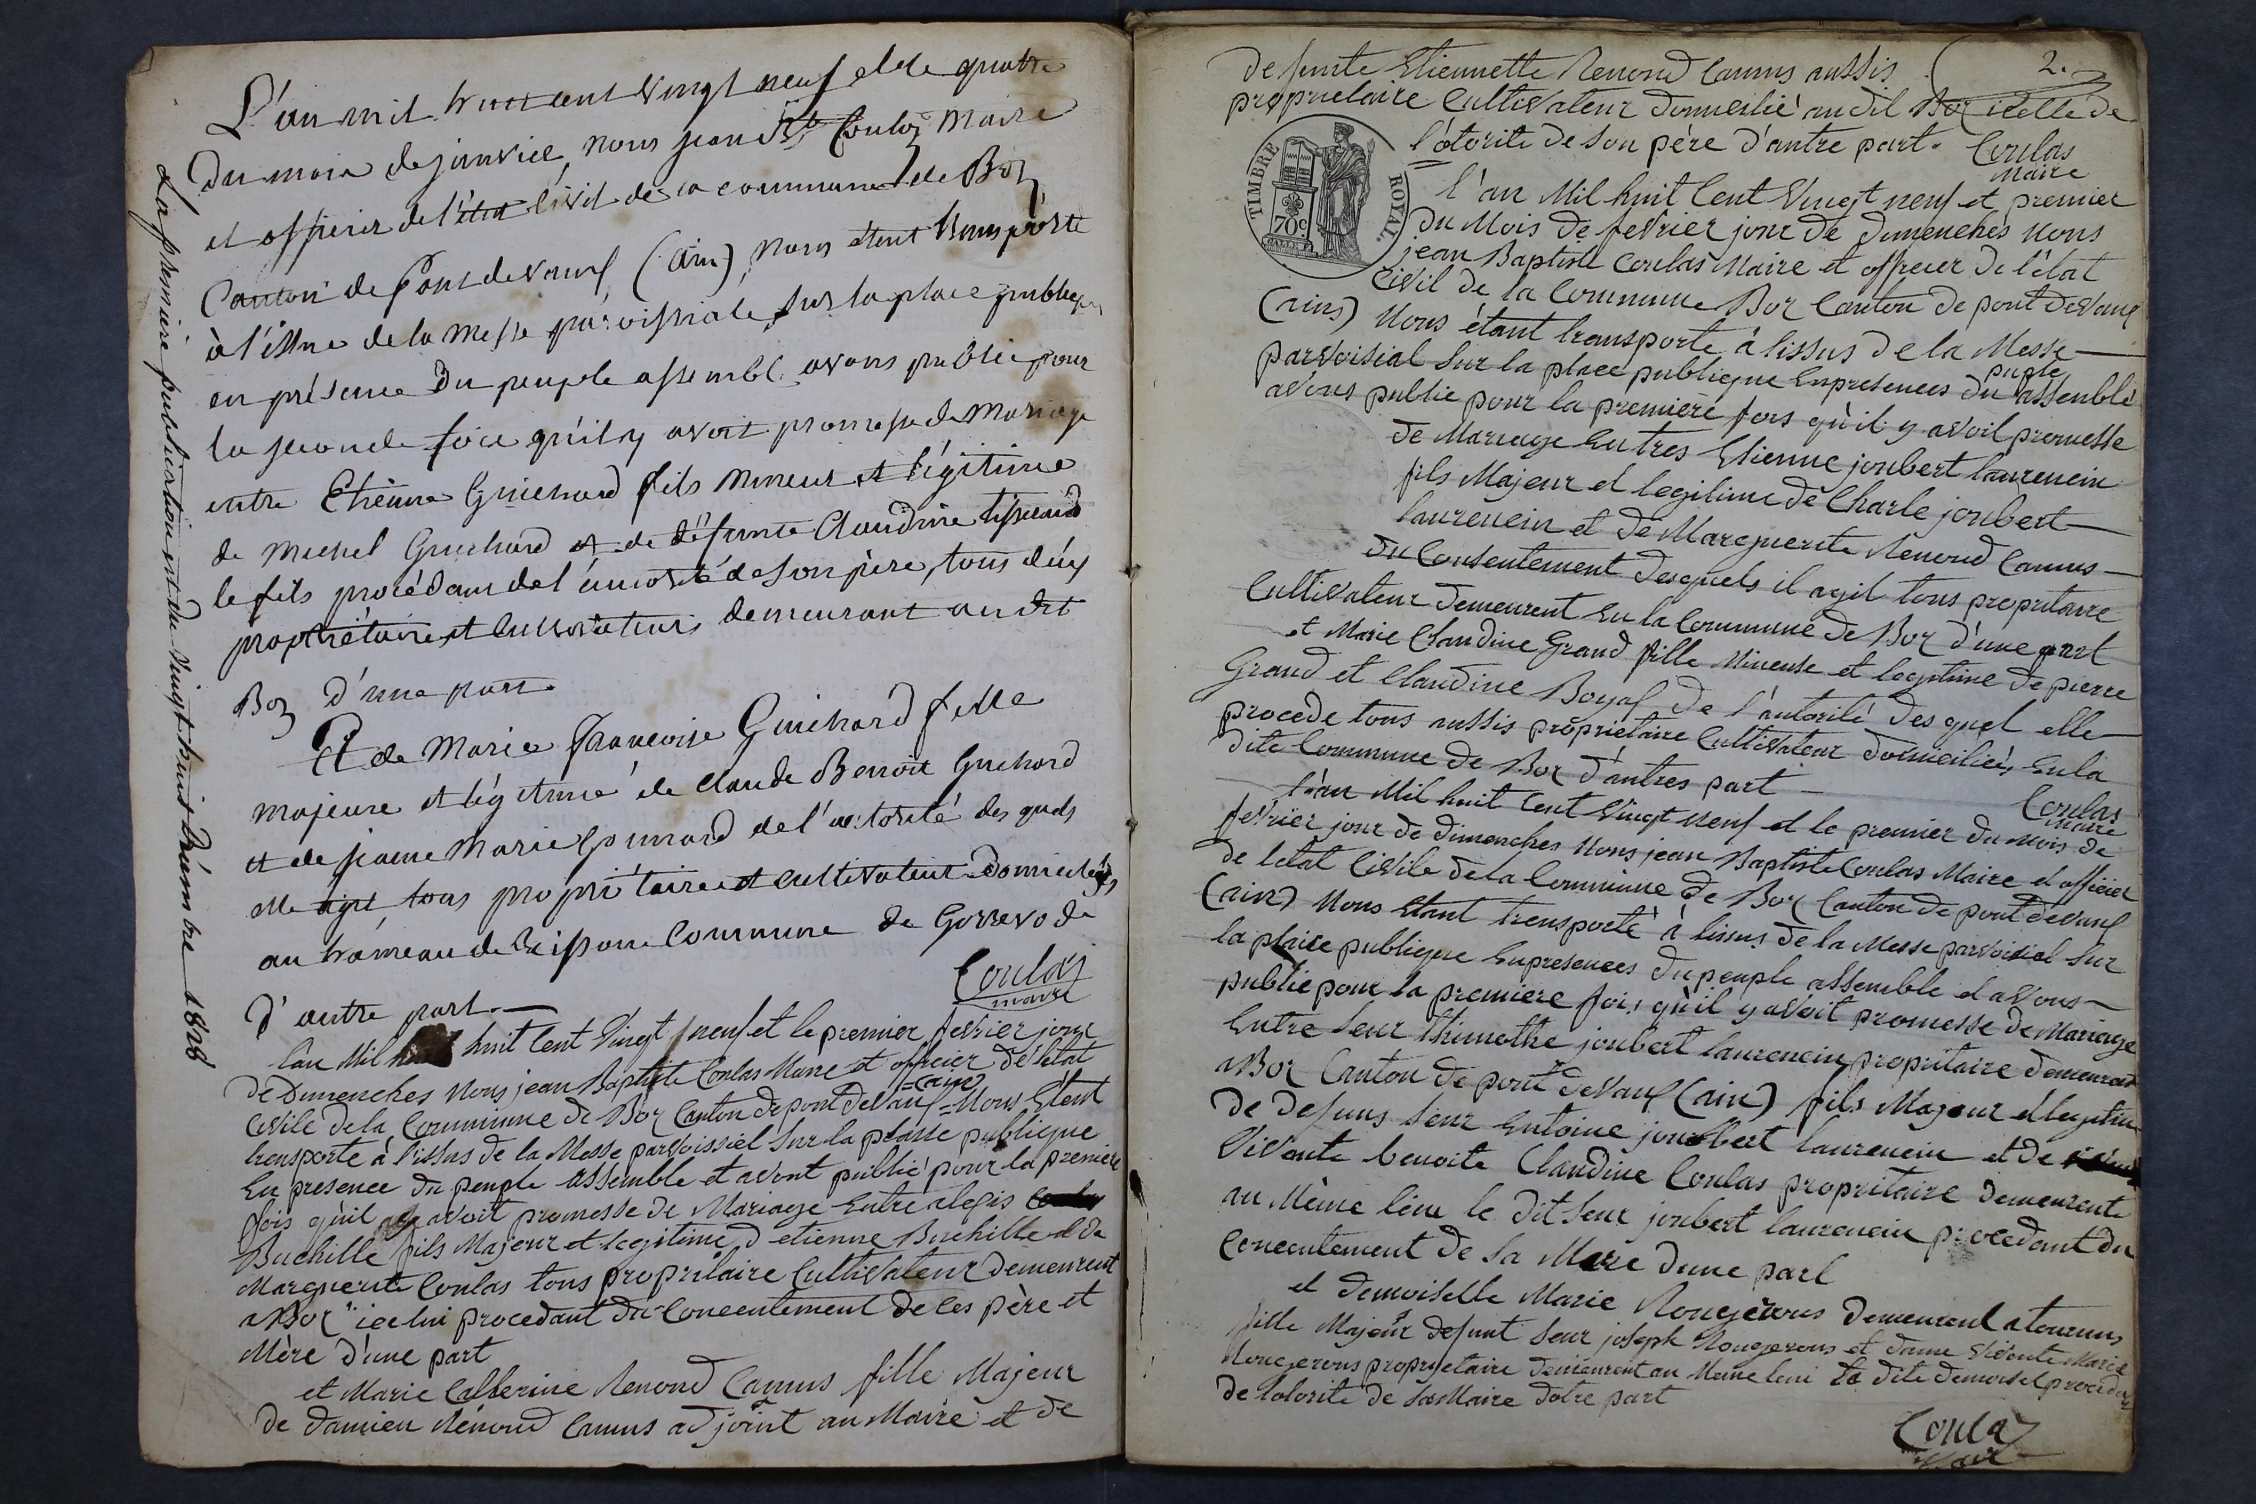 L'an mil huit cent vingt neuf et le quatre
du mois de janvier, nous jean Bte Coulas Maire
et officier de l'état civil de la commune de Boz
Canton de Pont de vaux (Ain) nous étent transporté
à l'issue de la Messe paroissiale, sur la place publique
en présence du peuple assemblé avons publié pour
la seconde fois qu'il y avoit promesse de Mariage
entre Etienne Guichard fils mineur et légitime
de Michel Guichard et de défunte Claudine tisseand
le fils procédant de l'autorité de son père, tous deux
propriétaires et cultivateurs demeurant audit
Boz d'une part.
Et de Marie Francoise Guichard fille
majeure et légitime de Claude Benoit Guichard
et de jeanne Marie Gounard de l'autorité des quels
elle agit tous propriétaires et cultivateurs domiciliés
au hameau de Commune de Gorrevode
d'autre part.
Coulas
maire
La première publication est du vingt huit Décembre 1828
l'an Mil huit Cent Vingt neuf et le premier fevrier jour
de Dimenches Nous jean Baptiste Coulas Maire et officier de létat
Civile de la Commune de Boz Canton de pont de Vaux =(ain)= Nous Etent
transporte à l'issus de la Messe parvoissiel sur la plasse publique
En presence du peuple assemble et avont publié pour la première
fois qu'il y avoit promesse de Mariage Entre alexis
Buchille fils Majeur et legitime d'etienne Buchille et de
Marguerite Coulas tous propritaire Cultivateur demeurent
a Boz icelui procedant du Concentement de ces père et
Mère d'une part
et Marie Catherine Renoud Camus fille Majeur
de damien Rénoud Camus adjoint au Maire et de
2.
defunte Etiennette Renoud Camus aussis
proprietaire Cultivateur domicilié au dit Boz icelle de
l'otorite de son père d'autre part.
Coulas
Maire
TIMBRE ROYAL.
70c
l'an Mil huit Cent Vingt neuf et premier
du Mois de fevrier jour de dimenches Nous
jean Baptiste Coulas Maire et officier de l'état
Civil de la Commune Boz Canton de pont de Vaux
(ains) Nous étant transporte à l'issus de la Messe
parvoisial sur la place publique En presences du puple assemblé
avons publie pour la première fois qu'il y avoit promesse
de Mariage Entres Etienne joubert laurencin
fils Majeur et legitime de Charle joubert
laurencin et de Marguerite Renoud Camus
du Consentement desquels il agit tous propritaire
Cultivateur demeurent En la Commune de Boz d'une part
et Marie Claudine Grand fille Mineuse et legitime de pierre
Grand et Claudine Boyat de l'autorité des quel elle
procede tous aussis propriétaire Cultivateur domiciliés En la
dite Commune de Boz d'autres part
Coulas
maire
l'an Mil huit Cent Vingt neuf et le premier du Mois de
fevrier jour de dimenches Nous jean Baptiste Coulas Maire et officier
de letat Civile de la Commune de Boz Canton de pont de vaux
(ain) Nous Etant trensporté à lissus de la Messe parvoisial sur
la plaice publique En presences du peuple assemble et avons
publié pour la premiere fois qu'il y avoit promesse de Mariage
Entre Seur thimothe joubert laurencin propritaire demeurent
a Boz Canton de pont de Vaux (ain) fils Majeur et legitime
de defuns Seur Entoine joubert laurencin et de
Vivente benoite Claudine Coulas propritaire demeurente
au Même lieu le dit Seur joubert laurencin procedant du
Concentement de sa Mere d'une part
et demoiselle Marie Rougerons demeurent a tournus
fille Majeur defunt Seur joseph Rougerons et dame Vivente Marie
Rougerons proprietaire demeurent au Meme leui la dite demoisel procedent
de lotorite de sa Maire dotre part
Coulas
Mair